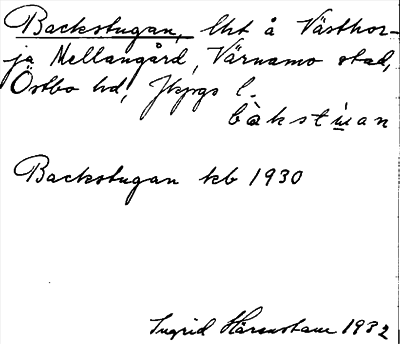 Backstugan, lht å Västhor-
ja Mellangård, Värnamo stad,
Östbo hd, Jkpgs l.
bàkstu̇an
Backstugan kb 1930
Ingrid Härenstam 1932